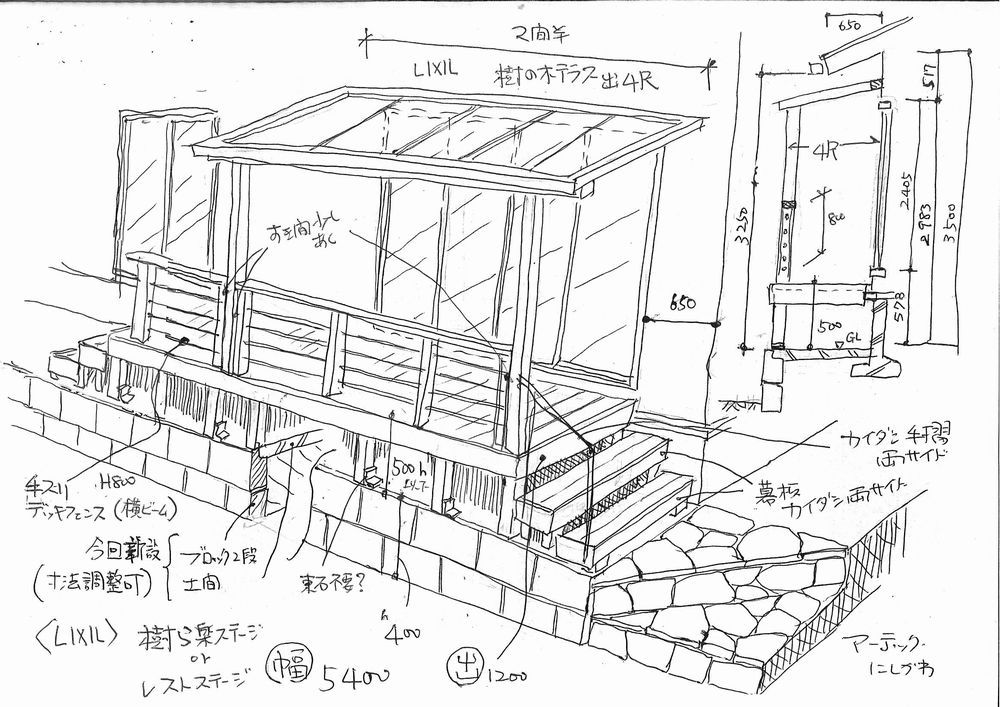 2間半
LIXIL 樹の木テラス 出4尺
650
517
4尺
800
2405
2983
3500
3250
578
500
▽GL
すき間少し
あく
650
カイダン手摺
両サイド
幕板
カイダン両サイド
手スリ H800
デッキフェンス(横ビーム)
500h
今回新設
(寸法調整可)
ブロック2段
土間
束石不要?
h
400
〈LIXIL〉 樹ら楽ステージ
or
レストステージ
幅 5400
出 1200
アーテック
にしがわ